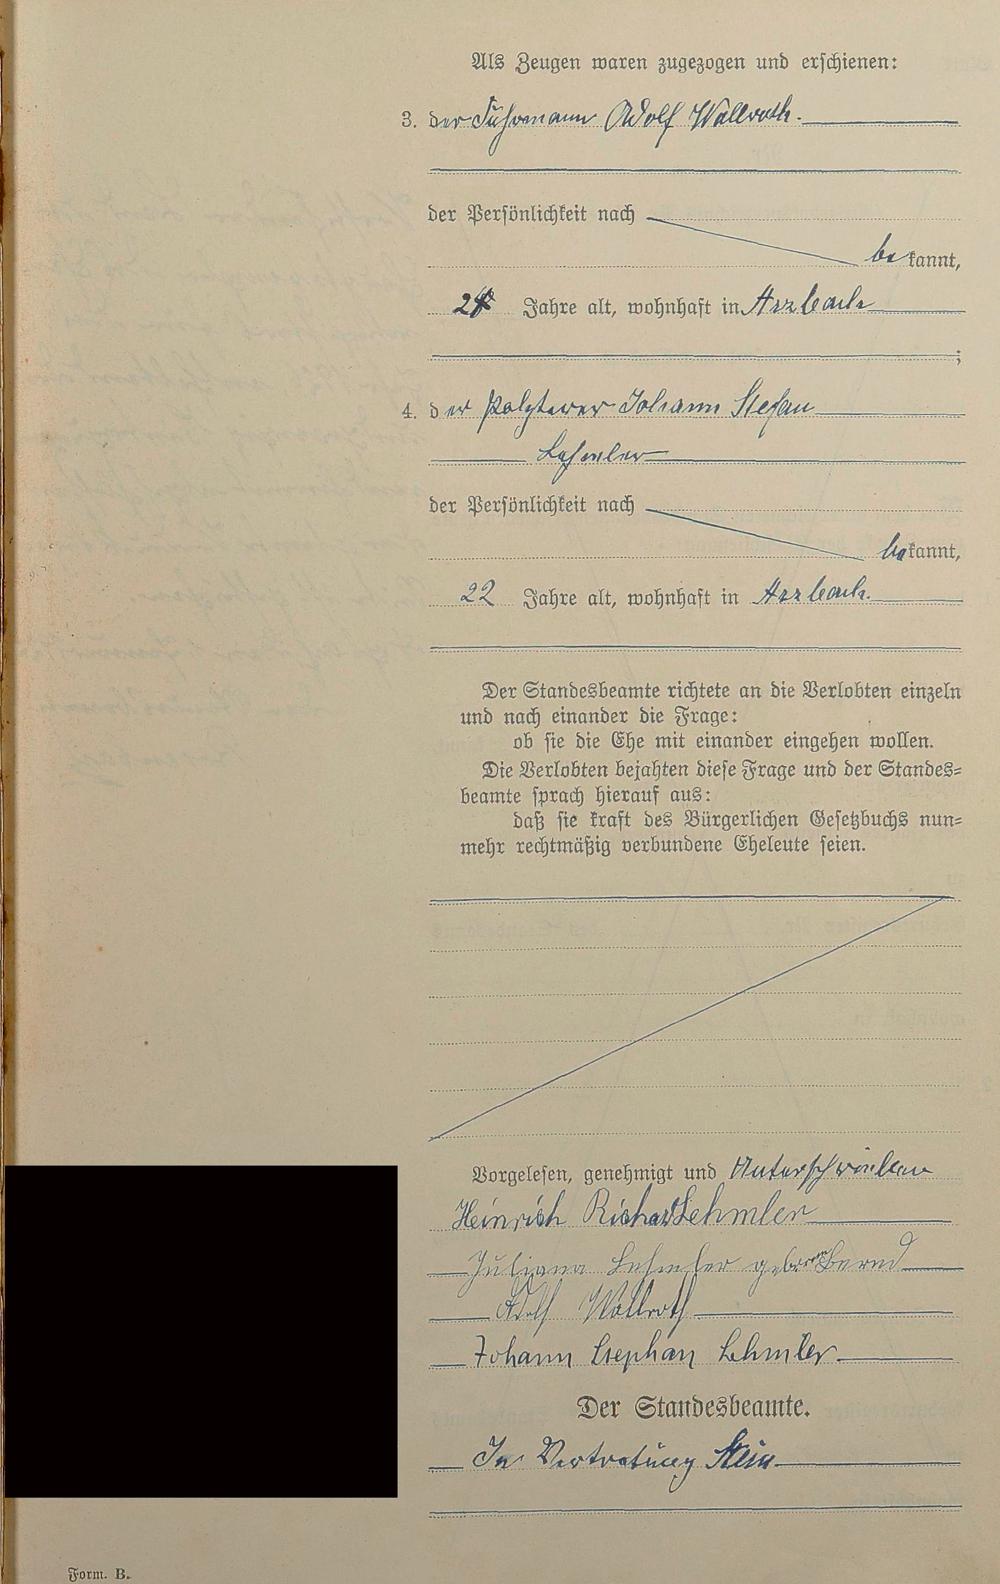 Als Zeugen waren zugezogen und erschienen:
3. der Fuhrmann Adolf Wallroth.
der Persönlichkeit nach
bekannt,
Jahre alt, wohnhaft in Arzbach
;
4. der Johann Stefan
Lehmler
der Persönlichkeit nach
bekannt,
22 Jahre alt, wohnhaft in Arzbach.
Der Standesbeamte richtete an die Verlobten einzeln
und nach einander die Frage:
ob sie die Ehe mit einander eingehen wollen.
Die Verlobten bejahten diese Frage und der Standes-
beamte sprach hierauf aus:
daß sie kraft des Bürgerlichen Gesetzbuchs nun-
mehr rechtmäßig verbundene Eheleute seien.
Vorgelesen, genehmigt und Unterschrieben
Heinrich Richard Lehmler
Juliana Lehmler geborene Bernd
Adolf Wallroth
Johann Stephan Lehmler
Der Standesbeamte.
In Vertretung Stein
Form. B.